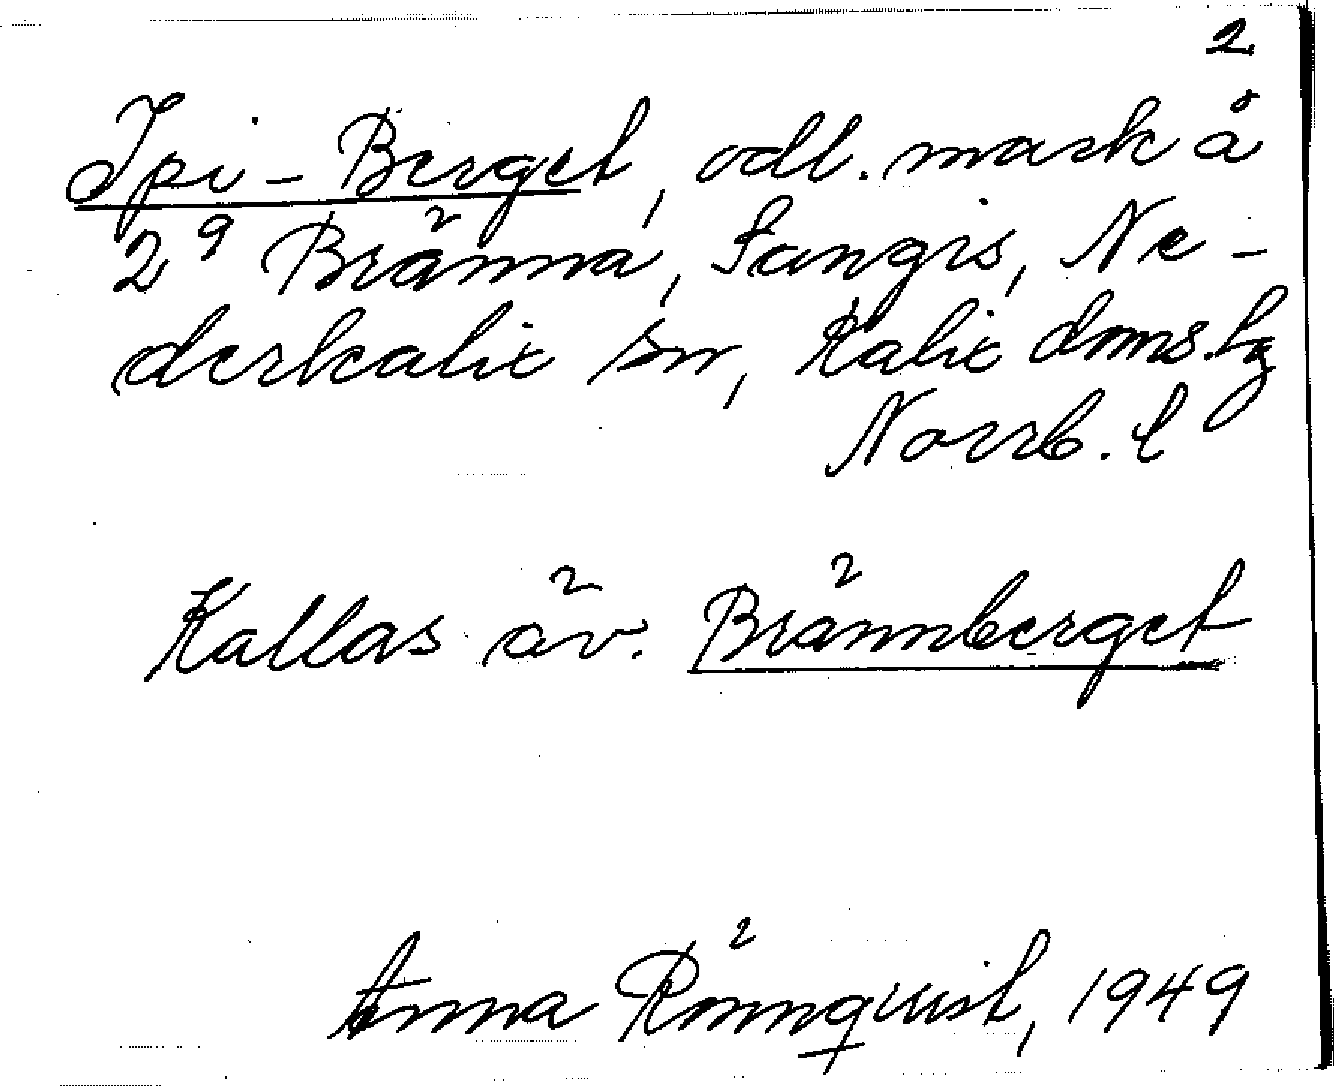 2
Ipi-Berget, odl. mark å
2⁹ Bränna, Sangis, Ne-
derkalix sn, Kalix doms.lg
Norrb. l
Kallas äv. Brännberget
Anna Rönnquist, 1949